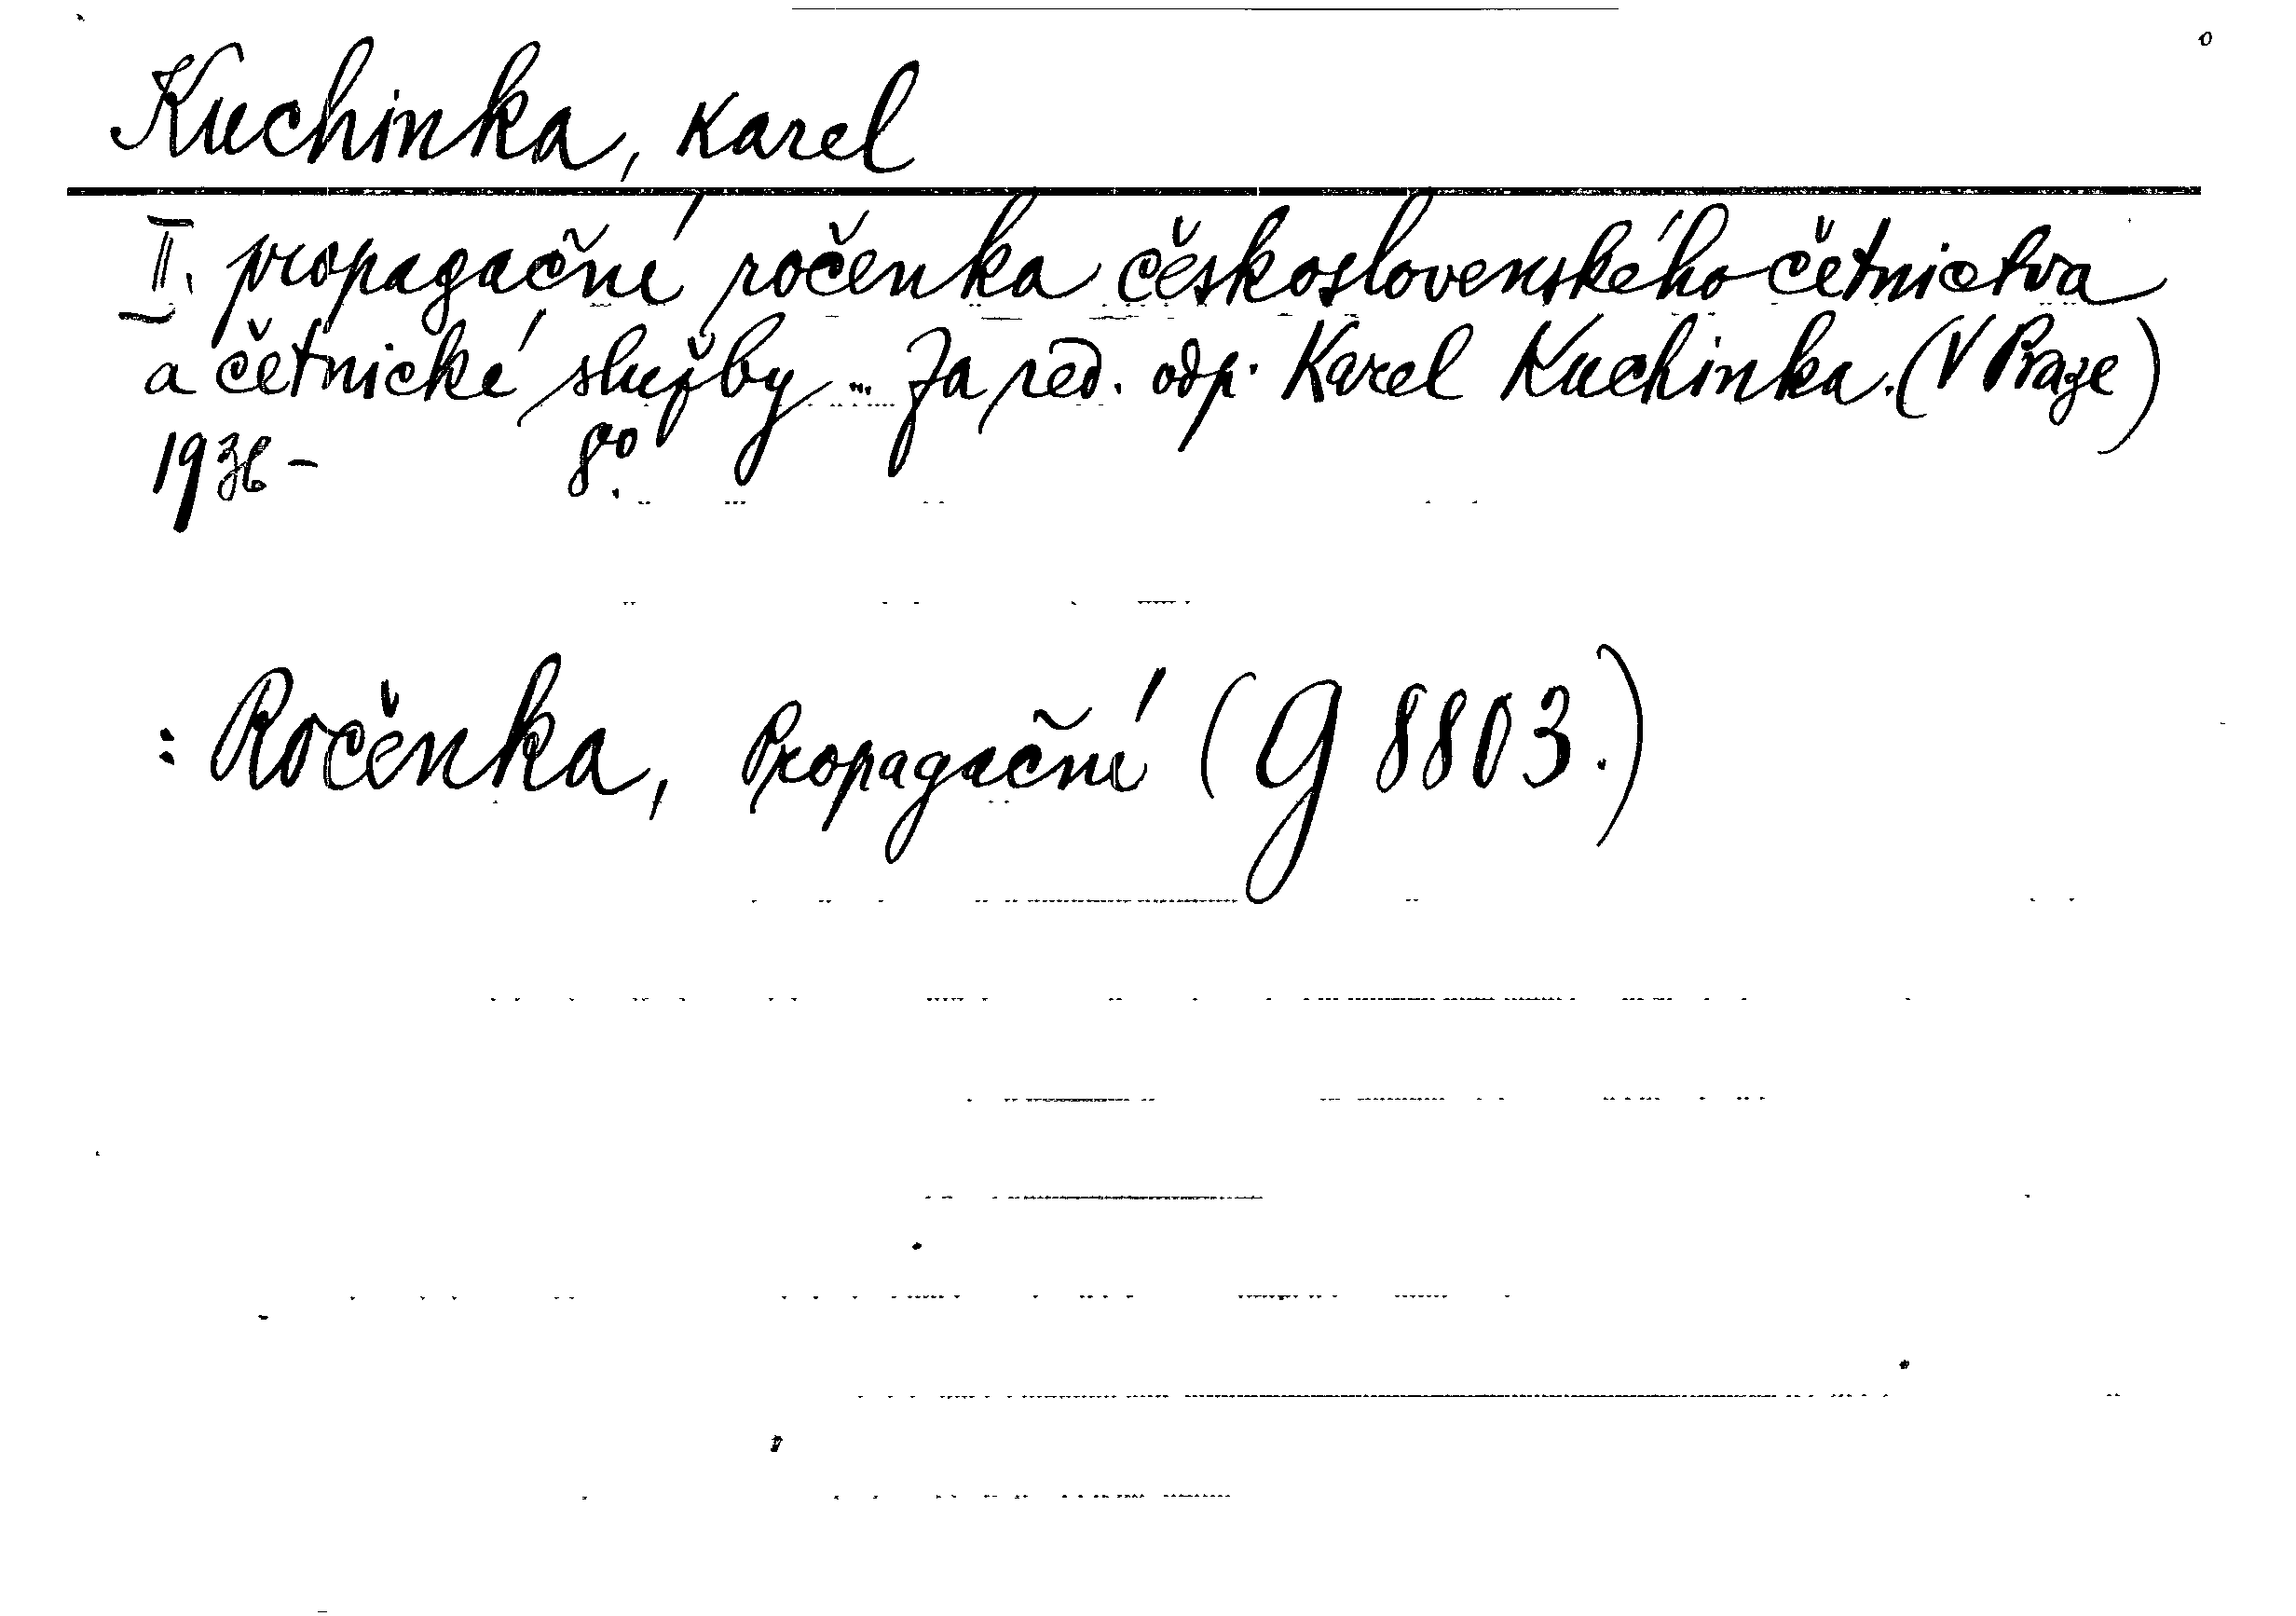 Kuchinka, Karel
II. propagační ročenka československého četnictva
a četnické služby ... Za red. odp. Karel Kuchinka. (V Praze)
1936- 8°.
: Ročenka, Propagační (G 8803.)